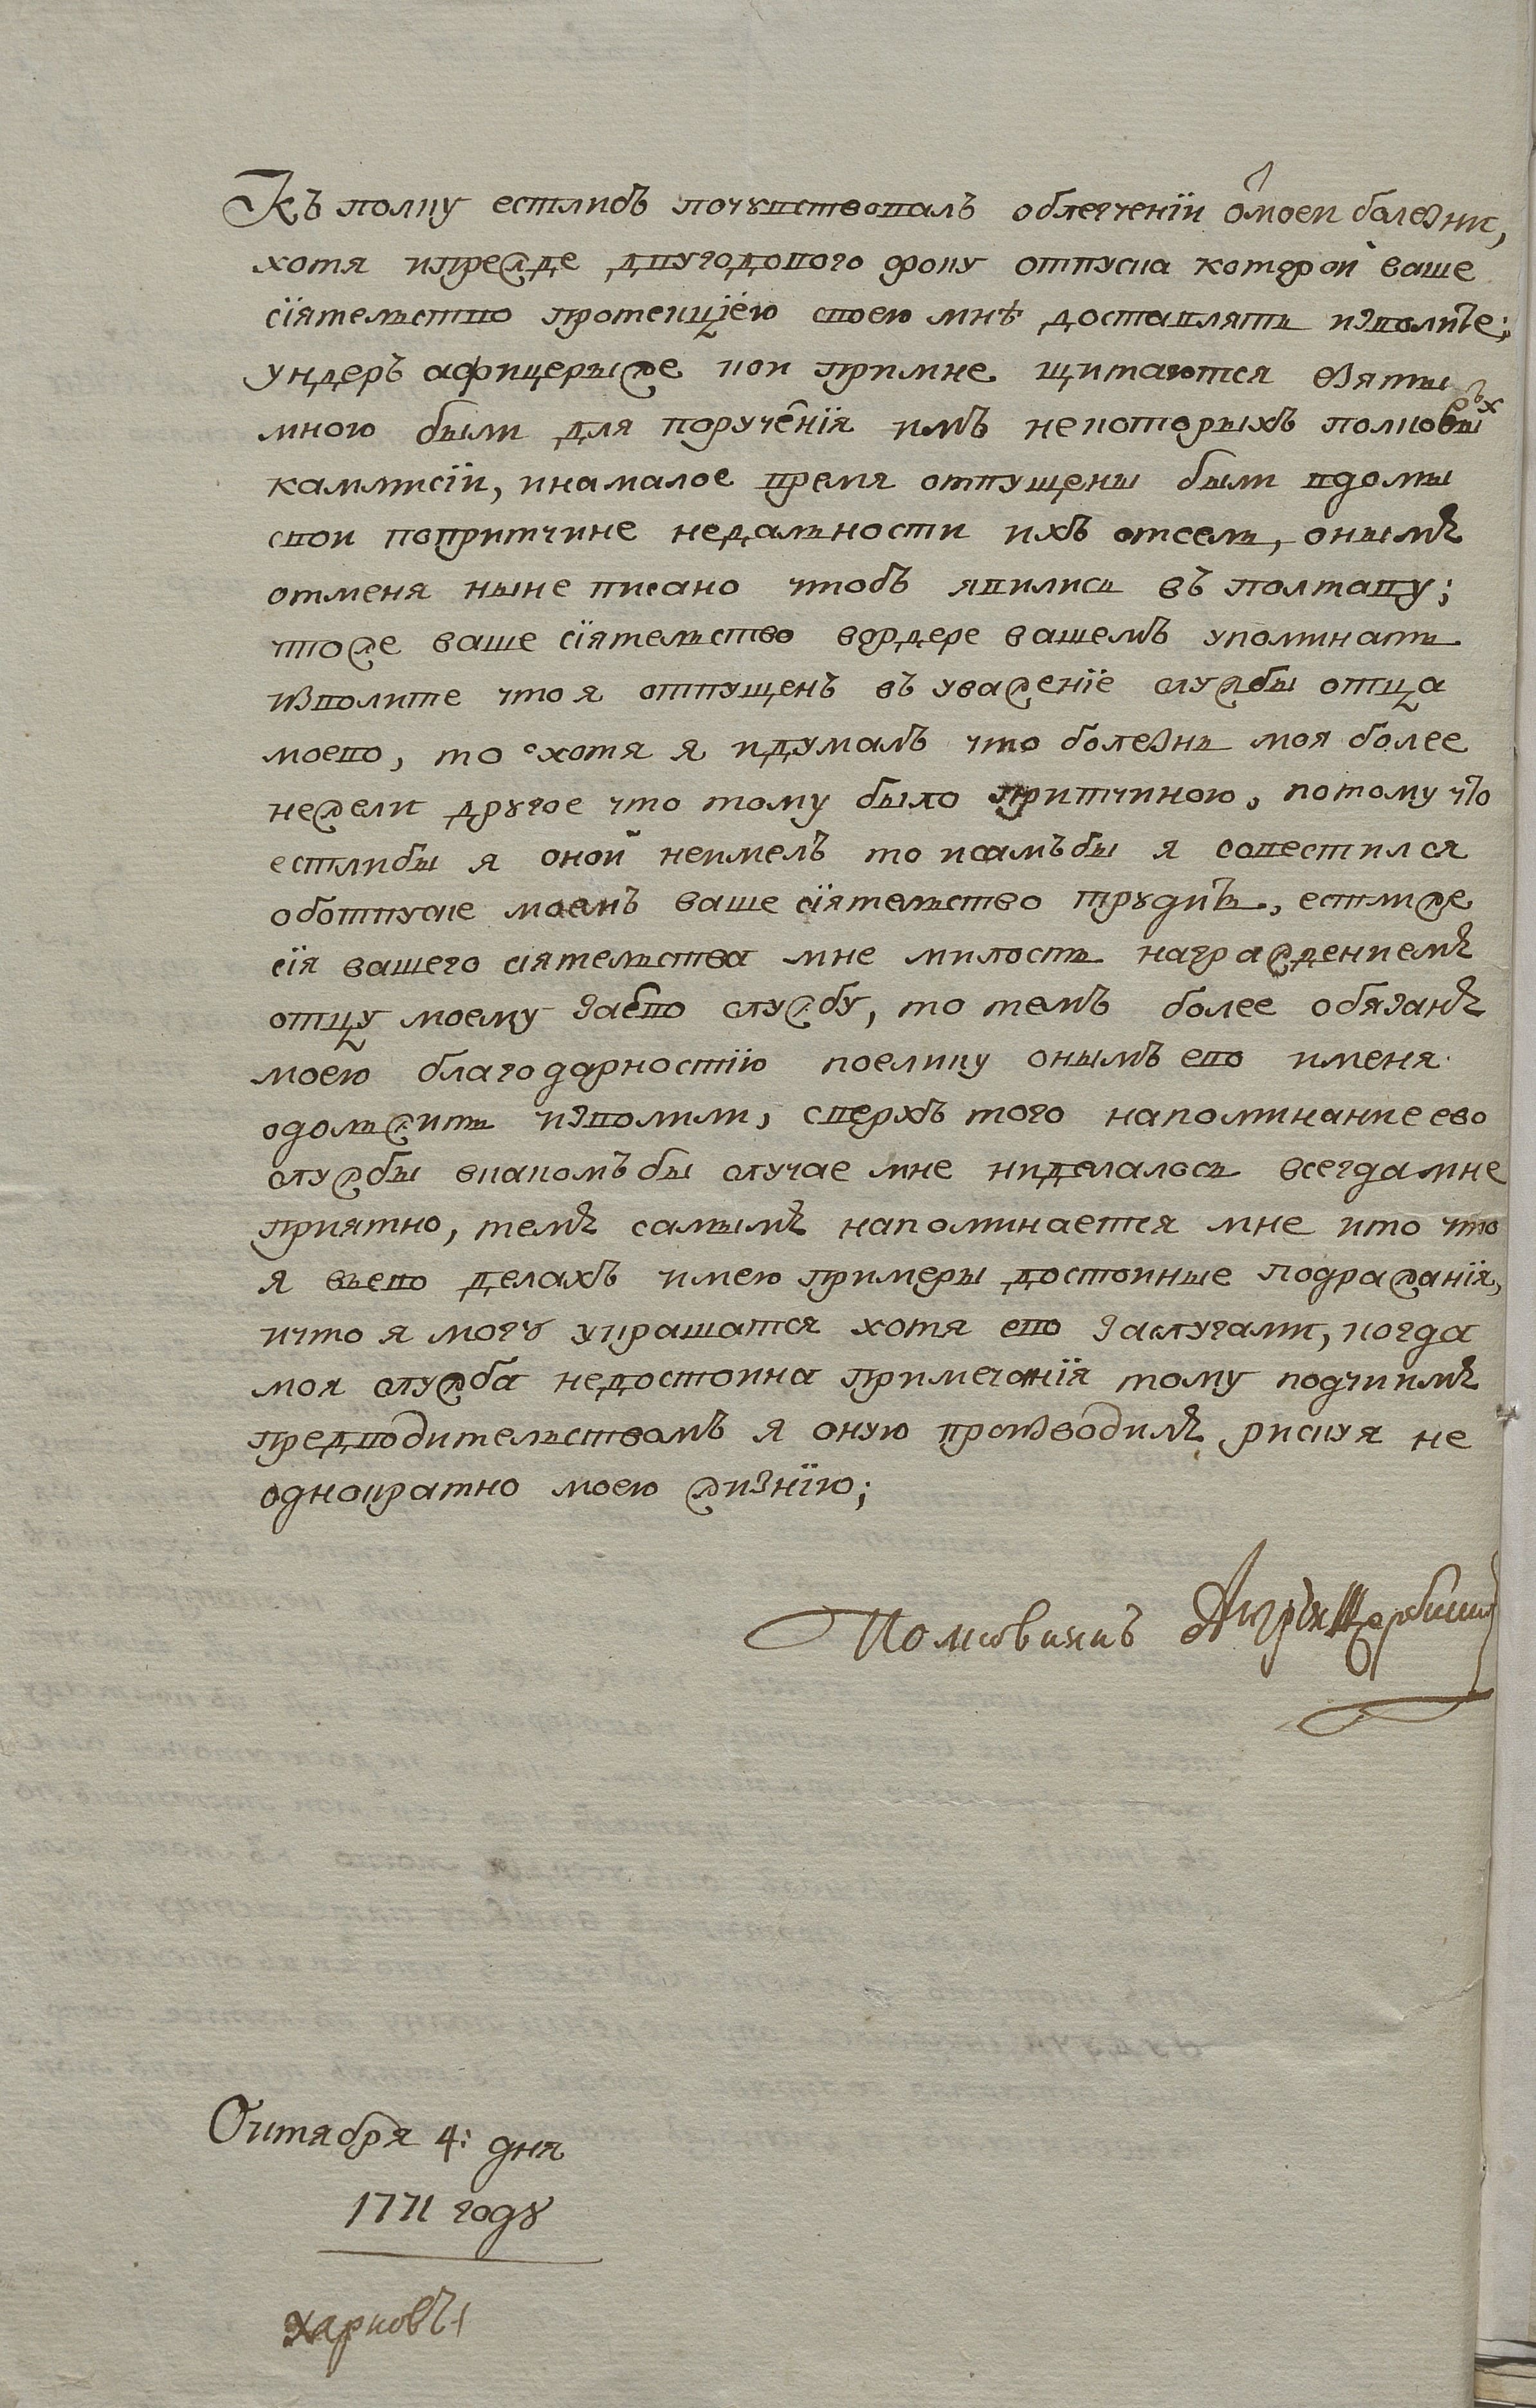 Къ полку естлибъ почувствовалъ облегченїи ѿ моеи болезни,
хотя ипрежде двугодового сроку отпуска которой ваше
сїятельство протекцїею своею мнѣ доставлять изволите;
ундеръ афицерыже кои примне щитаются взяты
мною были для порученїя имъ некоторыхъ полковыхъ
каммисїи, инамалое время отпущены были вдомы
свои попритчине недальности ихъ отсель, онымъ
отменя ныне писано чтобъ явились въ полтаву;
чтоже ваше сїятельство вордере вашемъ упоминать
изволите что я отпущенъ въ уваженїе службы отца
моево, то хотя я идумалъ что болезнь моя более
нежели другое что тому было притчиною, потому что
естлибы я оной неимелъ то исамъбы я совестился
оботпуске моемъ ваше сїятельство трудить, естлиже
сїя вашего сіятельства мне милость награждениемъ
отцу моему заево службу, то темъ более обязанъ
моею благодарностїю поелику онымъ ево именя
одолжить изволили, сверхъ того напоминание ево
службы вкакомъ бы случае мне ниделалось всегда мне
приятно, темъ самымъ напоминается мне ито что
я въево делахъ имею примеры достоиные подражанїя,
ичто я могу украшатся хотя ево заслугами, когда
моя служба недостоина примечанїя тому подчиимъ
предводительствомъ я оную производилъ рискуя не
однократно моею жизнїю;
Полковникъ Андрей Щербинин
Октября 4: дня
1771 году
харковъ